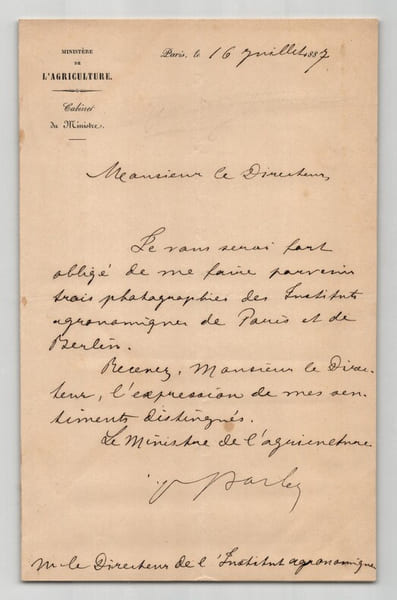 MINISTÈRE
DE
L'AGRICULTURE.
Cabinet
du Ministre.
Paris, le 16 Juillet 1887
Monsieur le Directeur,
Je vous serai fort
obligé de me faire parvenir
trois photographies des Instituts
agronomiques de Paris et de
Berlin.
Recevez, Monsieur le Direc-
teur, l'expression de mes sen-
timents distingués.
Le Ministre de l'agriculture
M. le Directeur de l'Institut agronomique